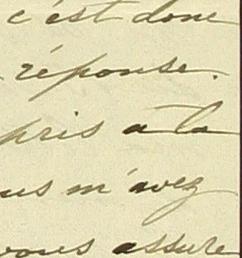 c'est donc
réponse.
pris à la
us m'avez
vous assure